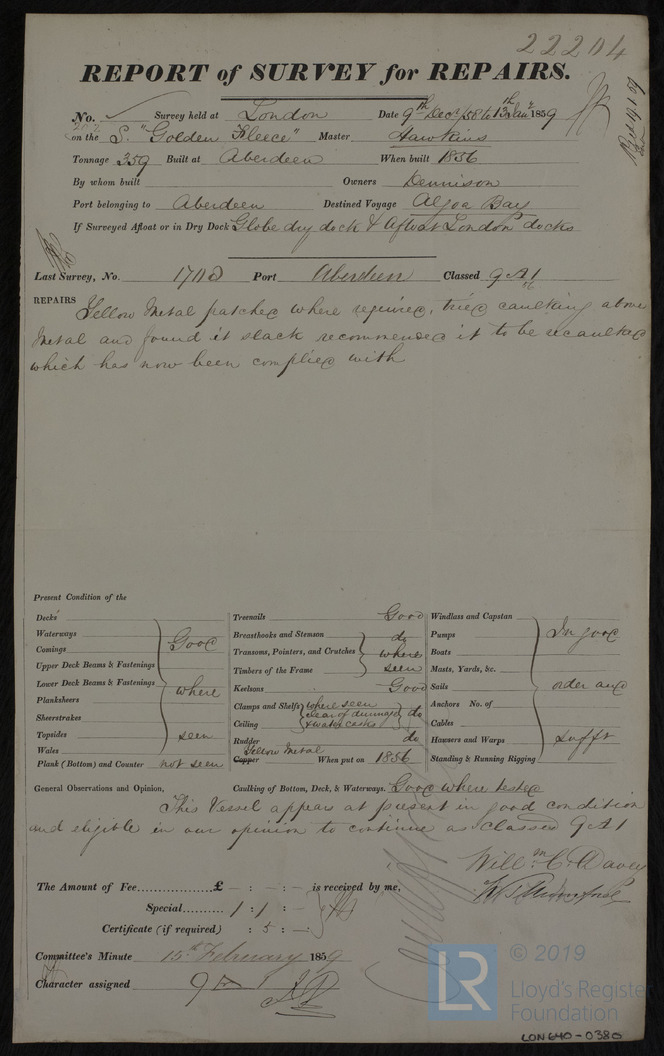 22204
REPORT of SURVEY for REPAIRS.
No. Survey held at London Date 9th Decr /58 to 13th Jany 1859
on the S. "Golden Fleece" Master Hawkins
Tonnage 359 Built at Aberdeen When built 1856
By whom built Owners Dennison
Port belonging to Aberdeen Destined Voyage Algoa Bay
If Surveyed Afloat or in Dry Dock Globe dry dock & Afloat London docks
Last Survey, No. 1703 Port Aberdeen Classed 9 A1
REPAIRS Yellow Metal patched where required, tried caulking above
Metal and found it slack recommended it to be recaulked
which has now been complied with
Present Condition of the
Decks
Waterways
Comings
Upper Deck Beams & Fastenings
Lower Deck Beams & Fastenings
Planksheers
Sheerstrakes
Topsides
Wales
Good
where
seen
Plank (Bottom) and Counter not seen
Treenails Good
Breasthooks and Stemson do
Transoms, Pointers, and Crutches where
Timbers of the Frame seen
Keelsons Good
Clamps and Shelfs where seen
Ceiling clear of dunnage & water casks do
Rudder do
Yellow Metal
Copper When put on 1856
Windlass and Capstan
Pumps
Boats
Masts, Yards, &c.
Sails
Anchors No. of
Cables
Hawsers and Warps
Standing & Running Rigging
In good
order and
sufft
General Observations and Opinion, Caulking of Bottom, Deck, & Waterways. Good where tested
This Vessel appears at present in good condition
and eligible in our opinion to continue as classed 9 A1
Willm C. Davey
The Amount of Fee £ - : - : - is received by me,
Special 1 : 1 : -
Certificate (if required) : 5 : -
Committee's Minute 15th February 1859
Character assigned 9 A 1
LR © 2019
Lloyd's Register
Foundation
LON640-0380